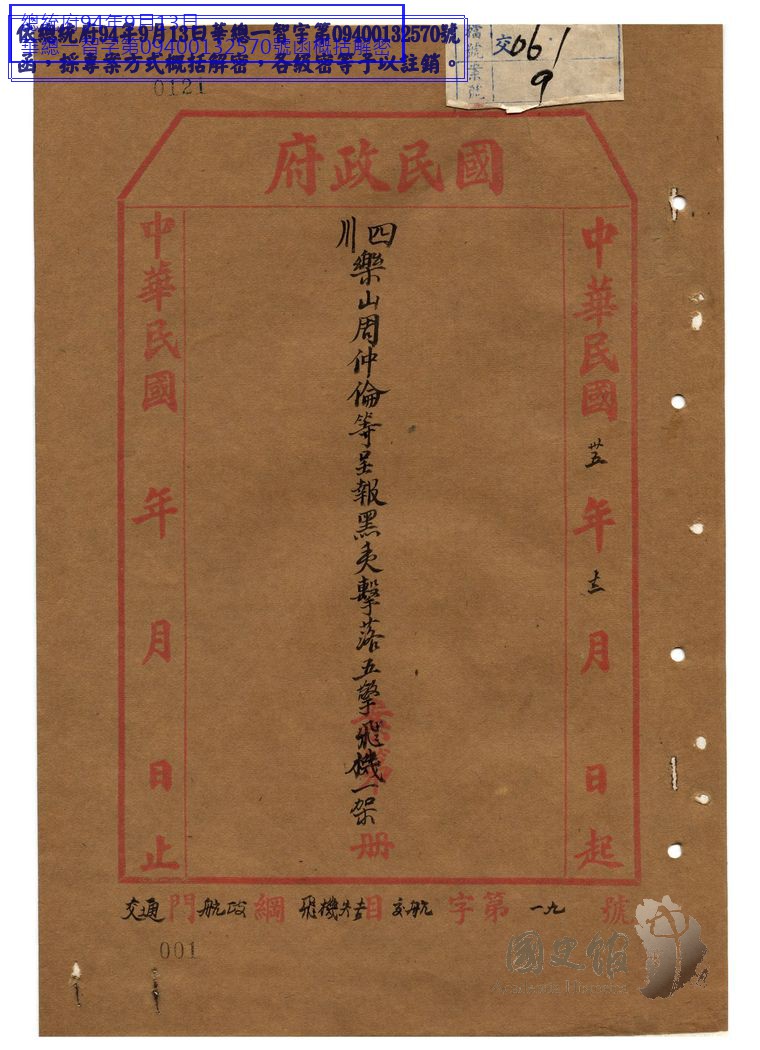 依總統府94年9月13日華總一智字第09400132570號
函，採專案方式概括解密，各級密等予以註銷。
總統府94年9月13日
華總一智字第09400132570號函概括解密
檔號
案號
交061
9
0121
國民政府
中華民國卅五年十二月 日起
四川樂山周仲倫等呈報黑夷擊落五擎飛機一架
冊
中華民國 年 月 日止
交通門航政綱飛機失吉目交航字第一九號
001
國史館
Academia Historica